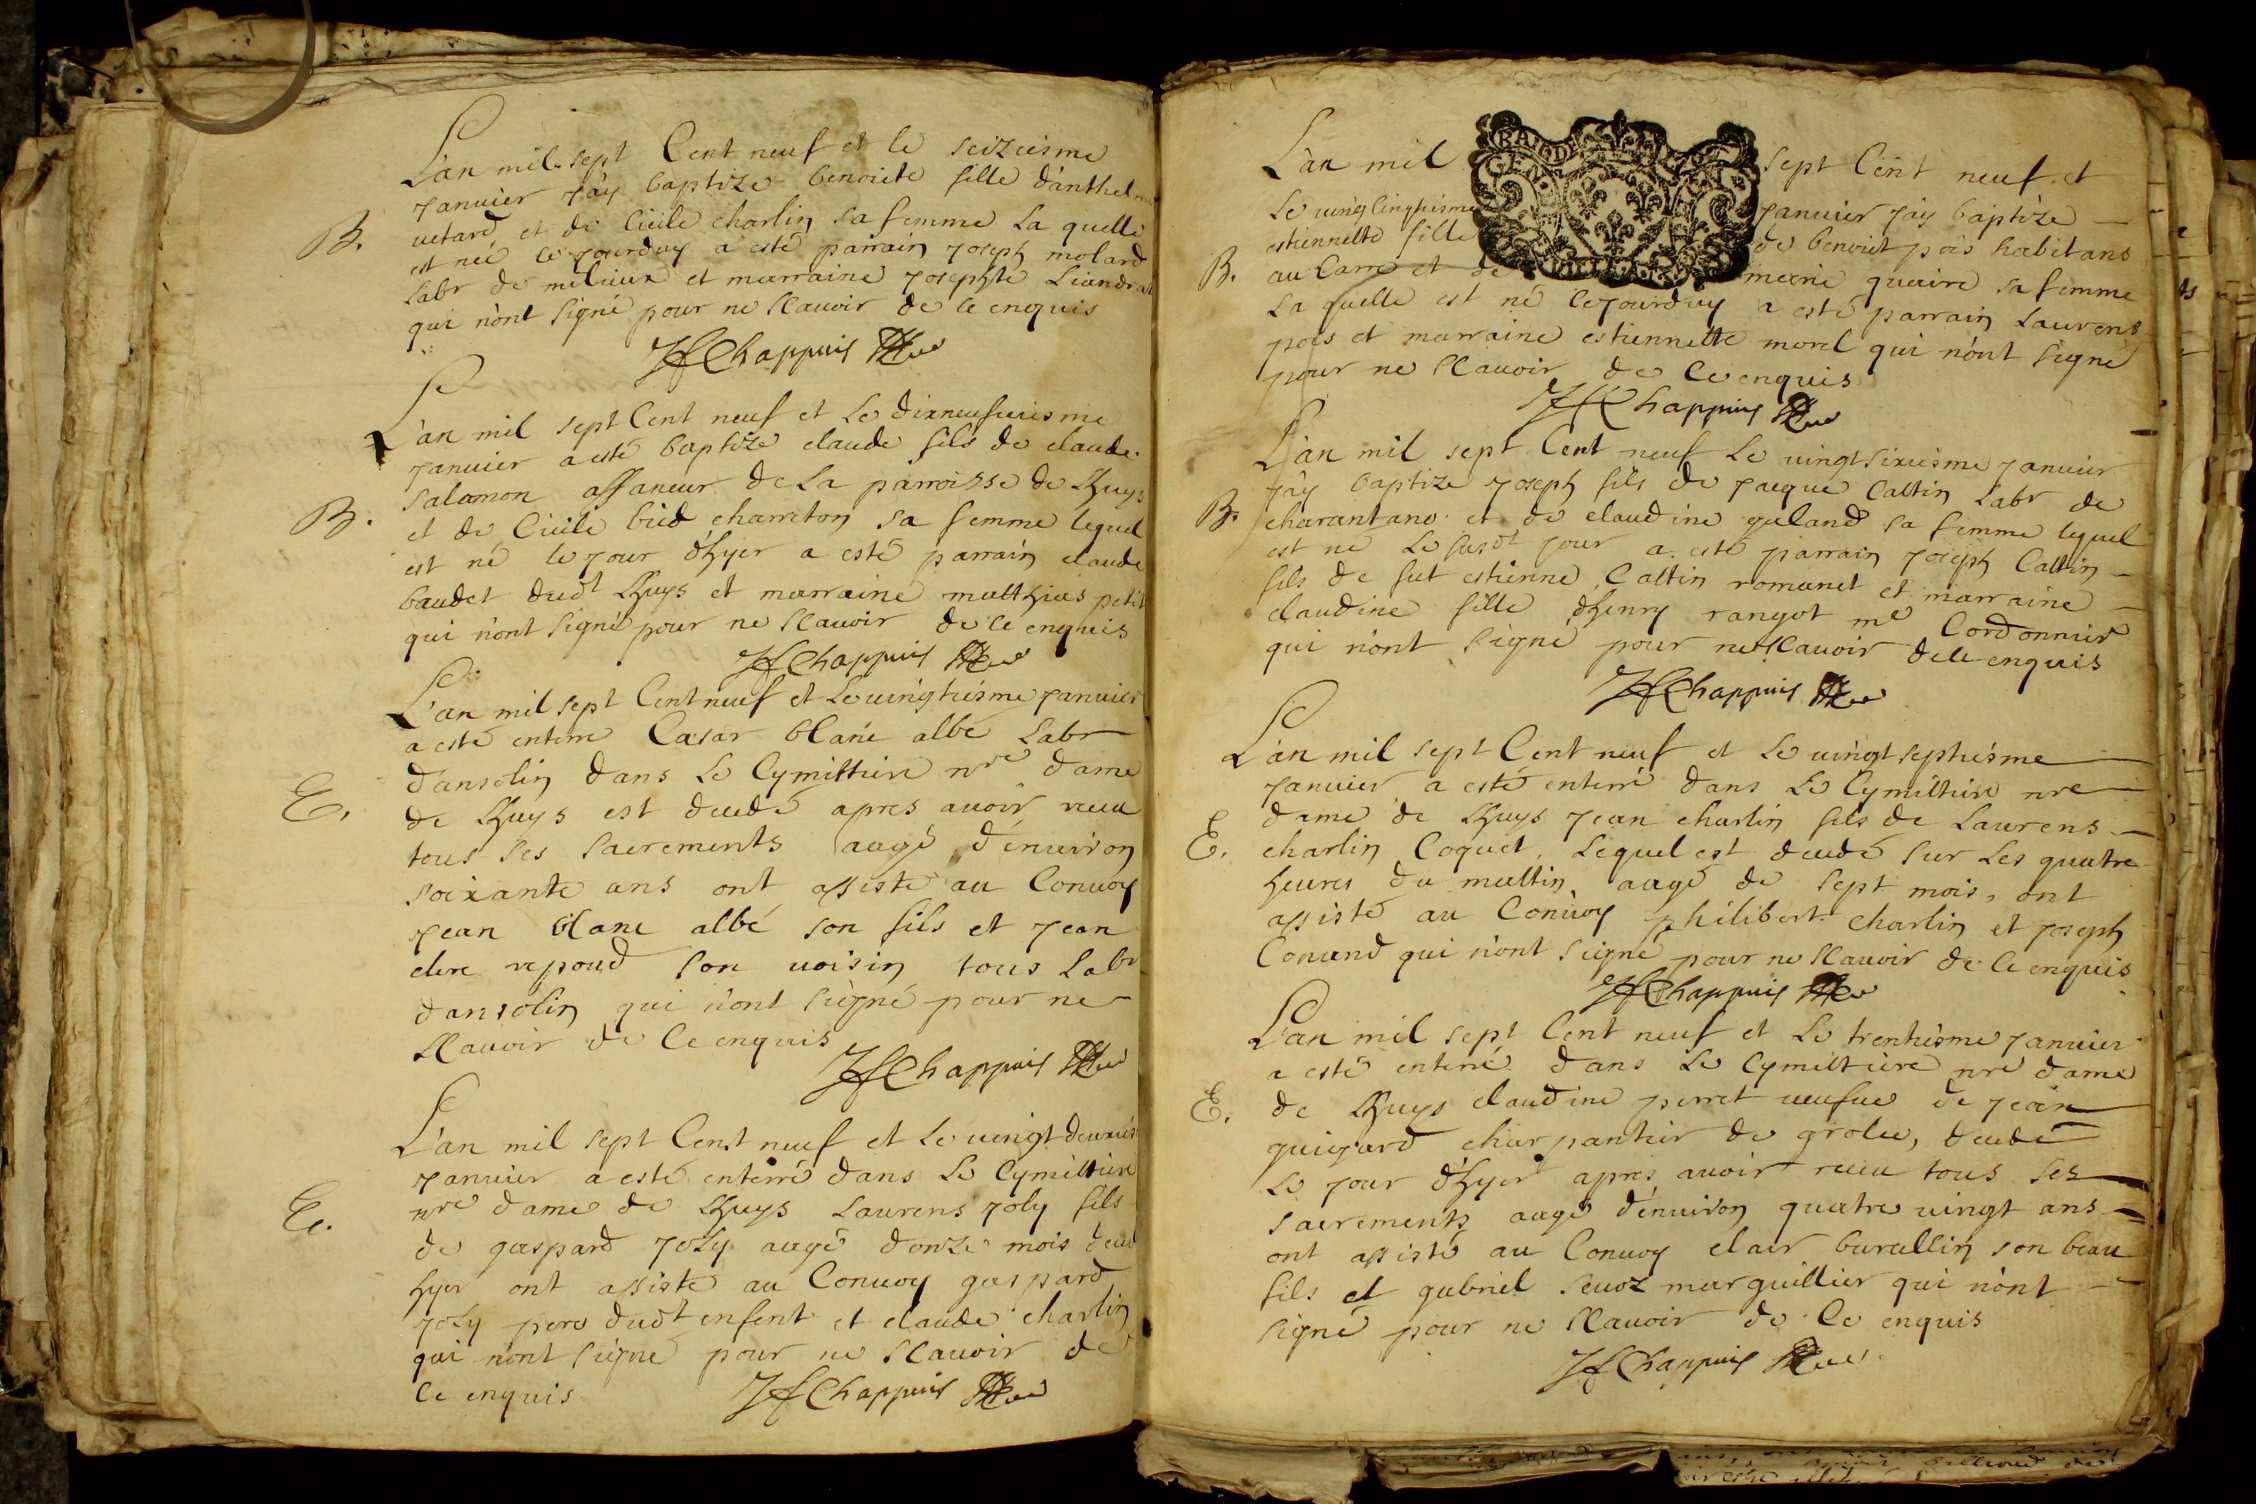 L'an mil sept Cent neuf et le seizeiesme
Janvier j'ay baptize benoiete fille d'anthelme
B.
uetard et de Cicile charlin sa femme la quelle
est née ce jourduy a esté parrain joseph molard
labr de milieux et marraine josephte Liandrat
qui n'ont signé pour ne scauoir de ce enquis
JfChappuis
L'an mil sept Cent neuf et le dixneufuiesme
Janvier a esté baptize claude fils de claude
salomon affaneur de la parroisse de Lhuys
B.
et de Cicile bied charreton sa femme lequel
est né le jour d'hyer a esté parrain claude
baudet dudt Lhuys et marraine matthias petit
qui n'ont signé pour ne scauoir de ce enquis
JfChappuis
L'an mil sept Cent neuf et le uingtiesme januier
a esté enterre Cæsar blanc albe labr
d'ansolin dans le Cymittiere nre dame
E.
de Lhuys est decedé apres auoir receu
tous ses sacrements aagé d'enuiron
soixante ans ont assisté au Conuoy
jean blanc albé son fils et jean
clere repoud son uoisin tous labr
dansolin qui n'ont signé pour ne
scauoir de ce enquis
JfChappuis
L'an mil sept Cent neuf et le uingt deuxies
januier a esté enterré dans le Cymittiere
nre dame de Lhuys Laurens joly fils
E.
de gaspard joly aagé d'onze mois deced
hyer ont assisté au Conuoy gaspard
joly pere dudt enfent et claude charlin
qui n'ont signé pour ne scauoir de
ce enquis JfChappuis
L'an mil sept Cent neuf et
le uingt cinquiesme januier j'ay baptize
estiennette fille de benoiet pois habitans
B.
au Carre et de merie quaire sa femme
la quelle est né ce jourduy a esté parrain Laurens
pois et marraine estiennette morel qui n'ont signe
pour ne scauoir de ce enquis
JfChappuis
L'an mil sept Cent neuf le uingtsixiesme januier
j'ay baptize joseph fils de jacque Cattin labr de
B.
charantano et de claudine galand sa femme lequel
est né le susdt jour a esté parrain joseph Cattin
fils de fut estienne Cattin romanet et marraine
claudine fille d'henry rangot me Cordonnier
qui n'ont signé pour ne scauoir de ce enquis
JfChappuis
L'an mil sept Cent neuf et le uingt septiesme
januier a esté enterré dans le Cymittiere nre
dame de Lhuys jean charlin fils de Laurens
E.
charlin Coquet, lequel est decedé sur les quatre
heures du mattin, aagé de sept mois, ont
assisté au Conuoy philibert charlin et joseph
Conand qui n'ont signé pour ne scauoir de ce enquis
JfChappuis
L'an mil sept Cent neuf et le trentiesme januier
a esté enterré dans le Cymittiere nre dame
E.
de Lhuys claudine perret ueufue de jean
guigard charpantier de grolee, decedé
le jour d'hyer apres auoir receu tous ses
sacrements aagé d'enuiron quatre uingt ans
ont assisté au Conuoy clair burallin son beau
fils et gabriel seuoz marguillier qui n'ont
signé pour ne scauoir de ce enquis
JfChappuis